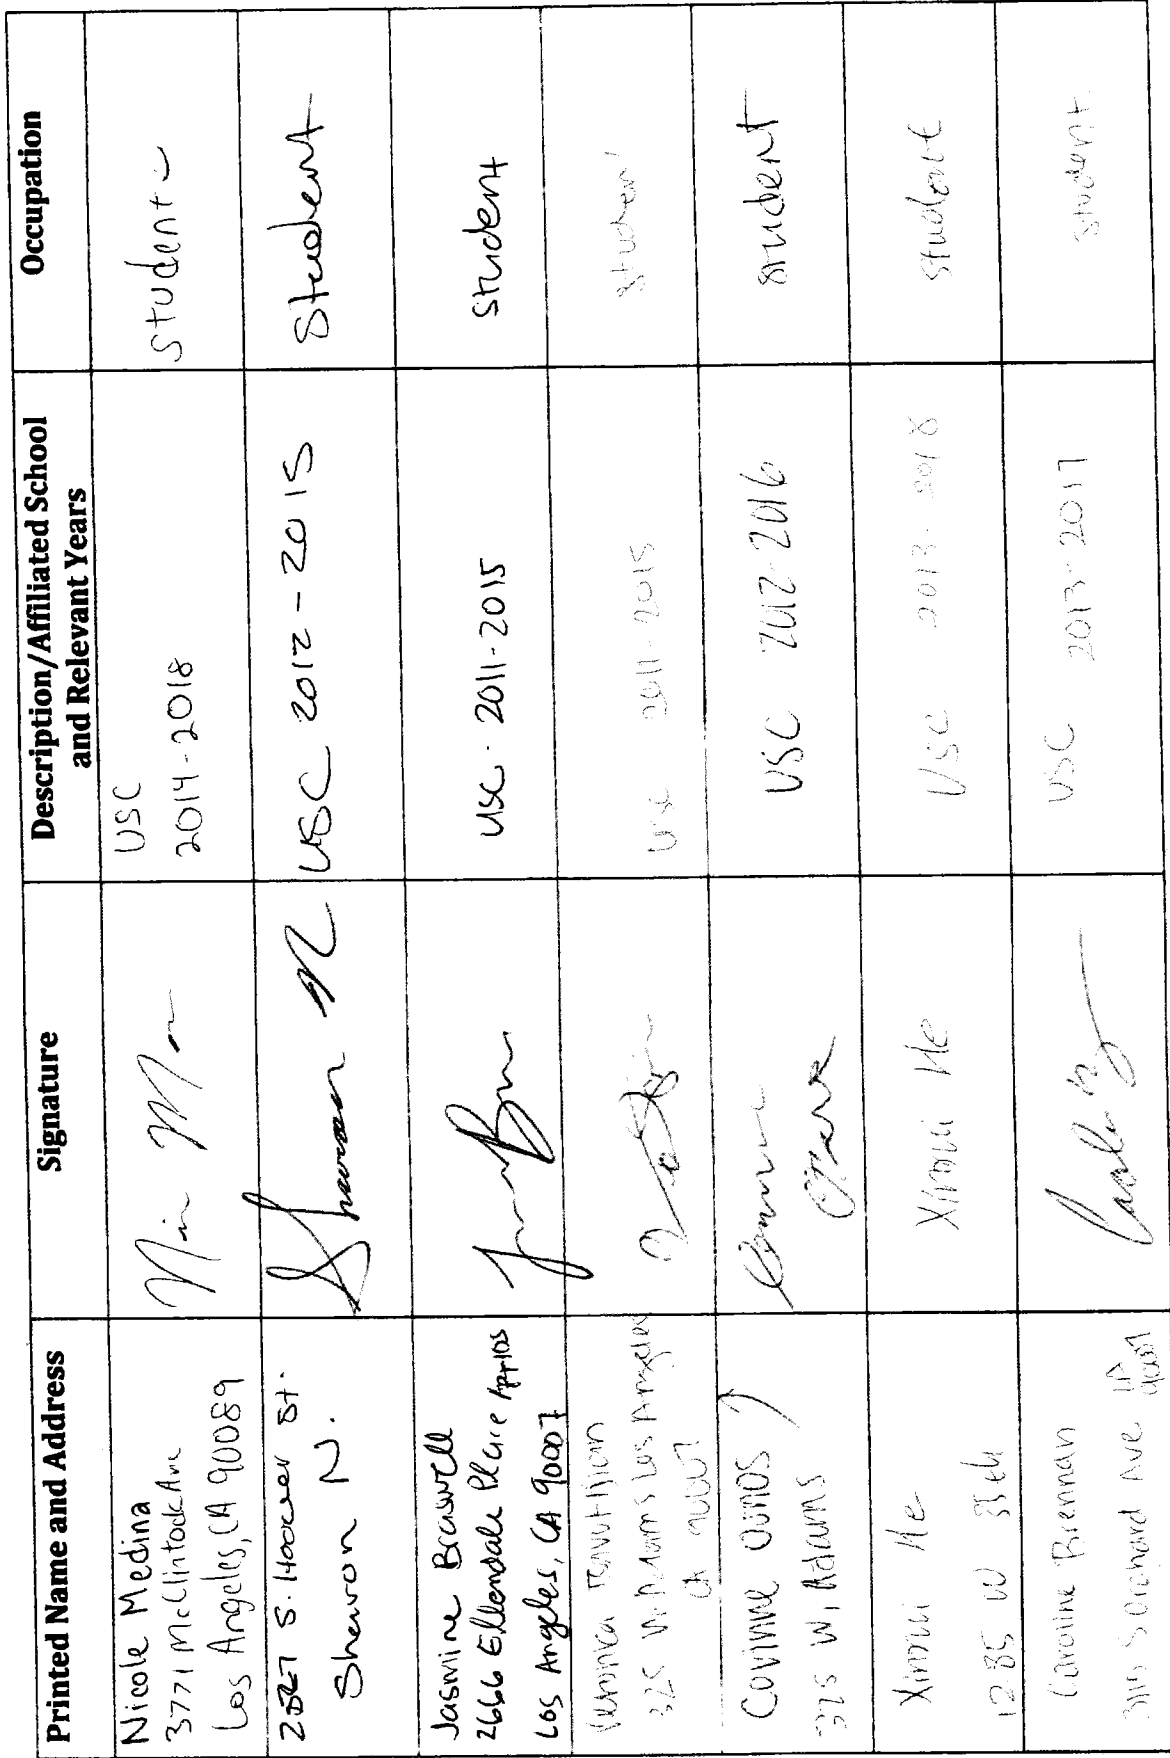 Printed Name and Address
Signature
Description/Affiliated School
and Relevant Years
Occupation
Nicole Medina
3771 McClintock Ave
Los Angeles, CA 90089
USC
2014-2018
student
S. Hoover St.
Sharon N.
USC 2012-2015
Student
Jasmine Braswell
2666 Ellendale Place Apt 105
Los Angeles, CA 90007
USC. 2011-2015
Student
Veronica
325 W. Adams Los Angeles
CA 90007
USC 2011-2015
student
Corinne
325 W. Adams
USC 2012-2016
student
He
1285 W 35th
He
USC 2013-2018
student
Caroline Brennan
S Orchard Ave LA
90007
USC 2013-2017
student